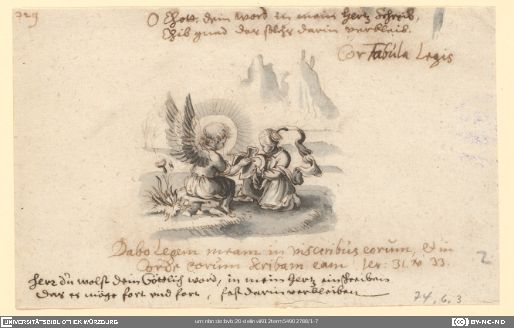 729
O Herr, dein word in mein hertz schreib,
gib gnad das stehs darin verbleib.
Cor Tabula Legis
Dabo Legem meam in visceribus eorum, et in
Corde eorum scribam eam, Jer. 31. v. 33.
Herr du wolst dein Göttlich word, in mein hertz einschreiben
das es möge fort und fort, fest darin verbleiben
2
74, 6, 3
UNIVERSITÄTSBIBLIOTHEK WÜRZBURG
CC BY-NC-ND